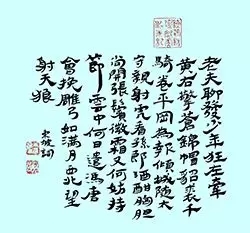 老夫聊發少年狂左牽
黃右擎蒼錦帽貂裘千
騎卷平岡為報傾城隨太
守親射虎看孫郎酒酣胸膽
尚開張鬢微霜又何妨持
節雲中何日遣馮唐
會挽雕弓如滿月西北望
射天狼
東坡詞